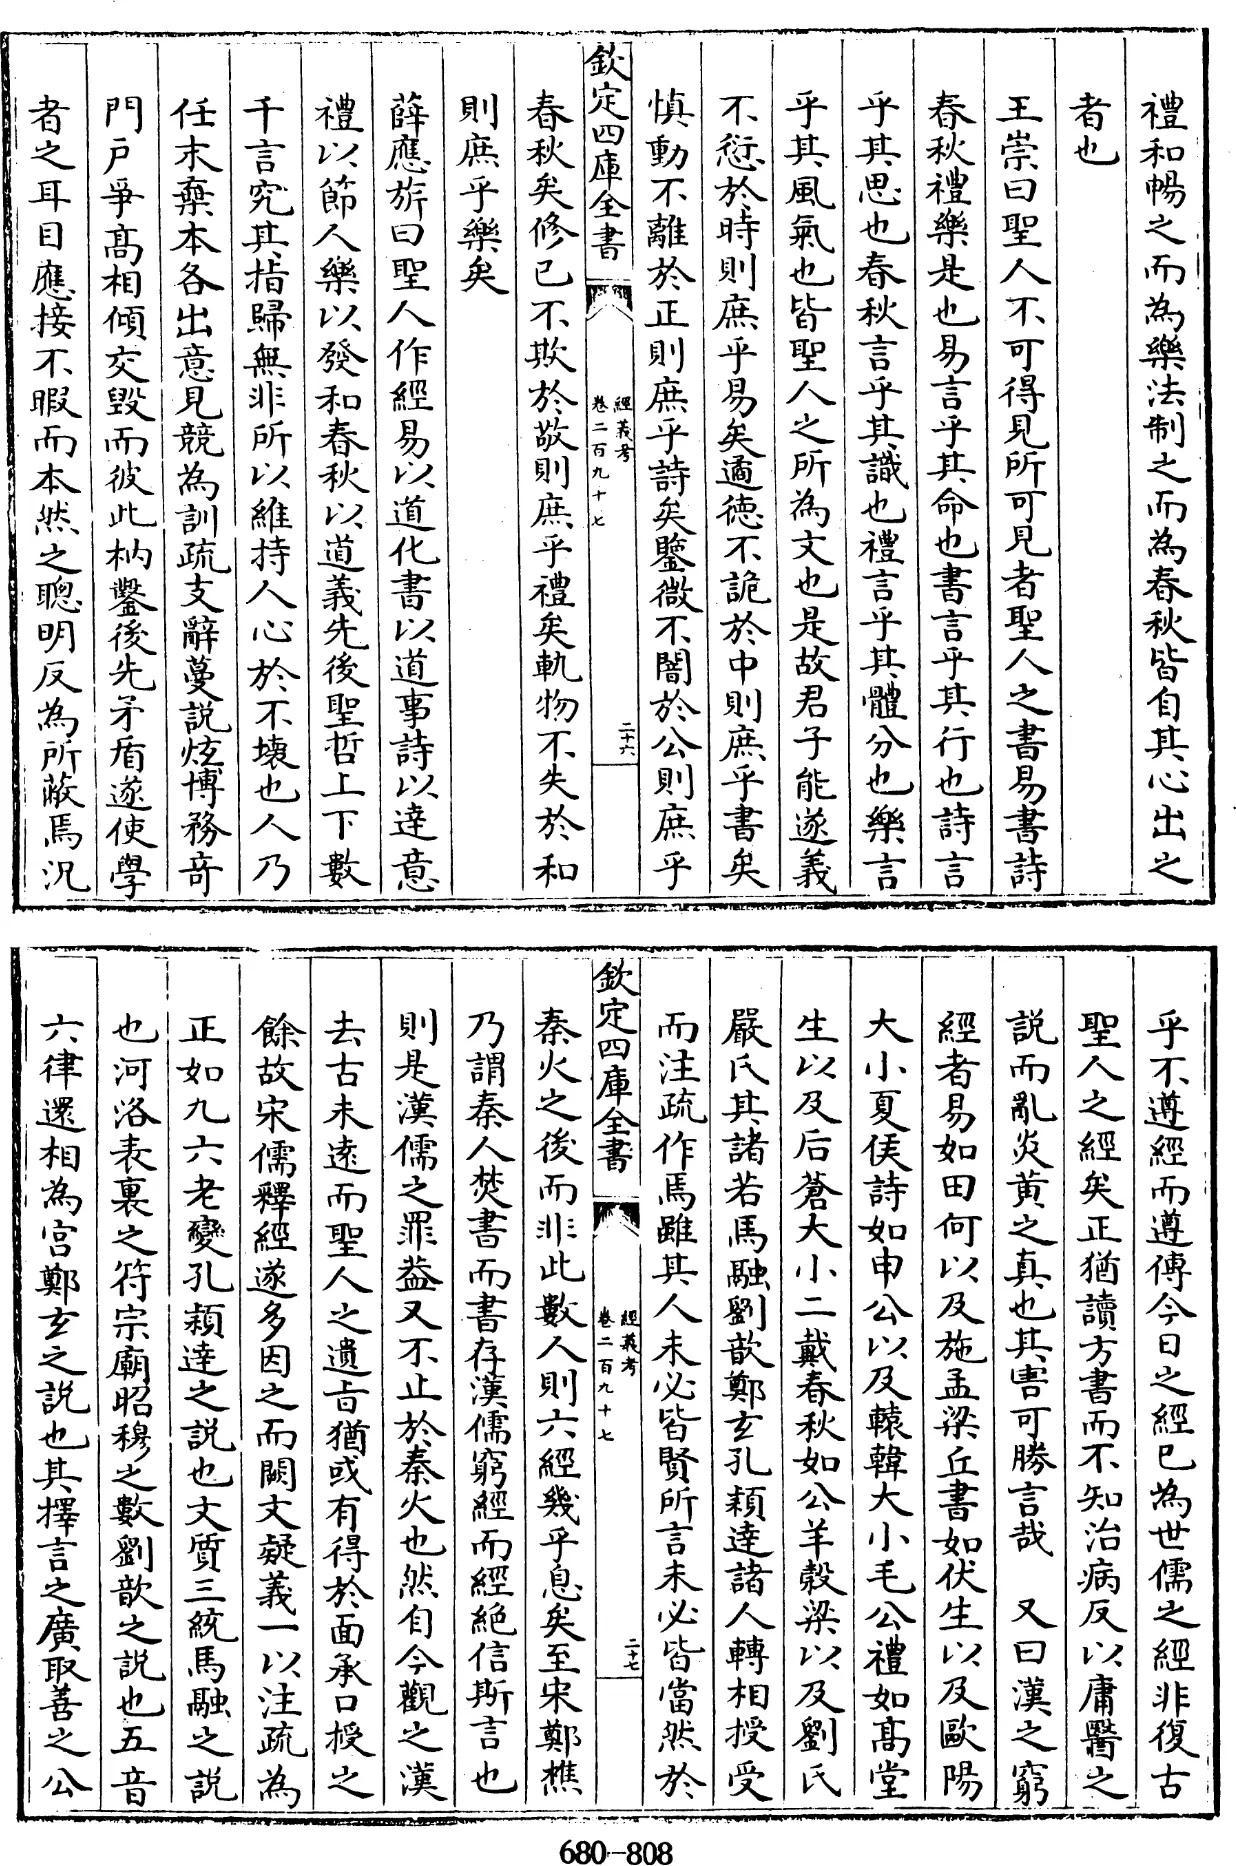 禮和暢之而為樂法制之而為春秋皆自其心出之
者也
王崇曰聖人不可得見所可見者聖人之書易書詩
春秋禮樂是也易言乎其命也書言乎其行也詩言
乎其思也春秋言乎其識也禮言乎其體分也樂言
乎其風氣也皆聖人之所為文也是故君子能遂義
不愆於時則庶乎易矣遹德不詭於中則庶乎書矣
慎動不離於正則庶乎詩矣鑒微不闇於公則庶乎
欽定四庫全書
經義考
卷二百九十七
二十六
春秋矣修己不欺於敬則庶乎禮矣軌物不失於和
則庶乎樂矣
薛應旂曰聖人作經易以道化書以道事詩以達意
禮以節人樂以發和春秋以道義先後聖哲上下數
千言究其指歸無非所以維持人心於不壞也人乃
任末棄本各出意見競為訓疏支辭蔓說炫博務奇
門戶爭高相傾交毀而彼此枘鑿後先矛盾遂使學
者之耳目應接不暇而本然之聰明反為所蔽焉況
乎不遵經而遵傳今日之經已為世儒之經非復古
聖人之經矣正猶讀方書而不知治病反以庸醫之
說而亂炎黃之真也其害可勝言哉　又曰漢之窮
經者易如田何以及施孟梁丘書如伏生以及歐陽
大小夏侯詩如申公以及轅韓大小毛公禮如高堂
生以及后蒼大小二戴春秋如公羊穀梁以及劉氏
嚴氏其諸若馬融劉歆鄭玄孔穎達諸人轉相授受
而注疏作焉雖其人未必皆賢所言未必皆當然於
欽定四庫全書
經義考
卷二百九十七
二十七
秦火之後而非此數人則六經幾乎息矣至宋鄭樵
乃謂秦人焚書而書存漢儒窮經而經絕信斯言也
則是漢儒之罪益又不止於秦火也然自今觀之漢
去古未遠而聖人之遺旨猶或有得於面承口授之
餘故宋儒釋經遂多因之而闕文疑義一以注疏為
正如九六老變孔穎達之說也文質三統馬融之說
也河洛表裏之符宗廟昭穆之數劉歆之說也五音
六律還相為宮鄭玄之說也其擇言之廣取善之公
680-808